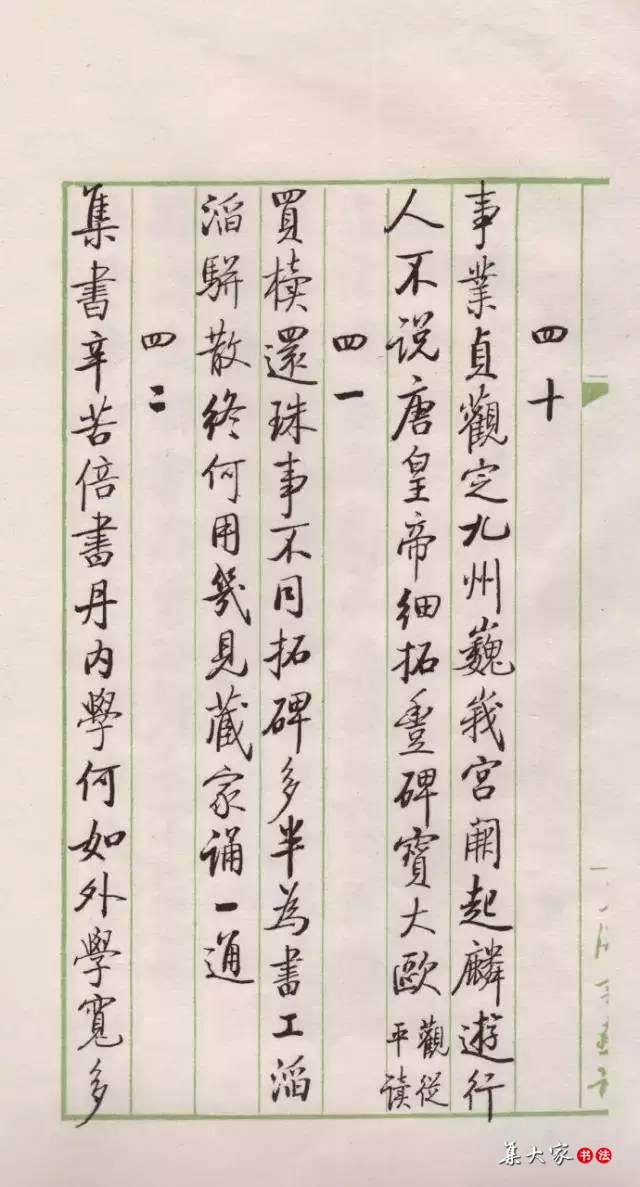 四十
事業貞觀定九州巍峩宮闕起麟遊行
人不说唐皇帝细拓豐碑寶大歐觀從平读
四一
買櫝還珠事不同拓碑多半為書工滔
滔駢散終何用幾見藏家誦一通
四二
集書辛苦倍書丹内學何如外學寬多
集大家书法